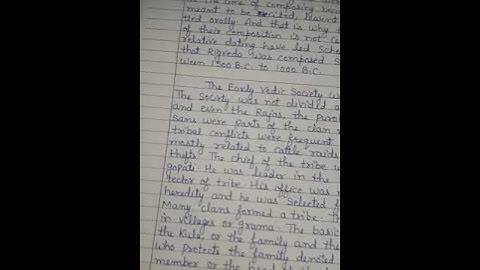 the time of composing
meant to be recited, learnt
ted orally. And that is why t
of their composition is not ce
relative dating have led Scho
that Rigveda was composed S
ween 1500 B.C. to 1000 B.C.
The Early Vedic Society w
The Society was not divided a
and even the Rajas, the puro
sans were parts of the clan
tribal conflicts were frequent.
mostly related to cattle raids
thefts. The chief of the tribe w
gopati. He was leader in the
tector of tribe. His office was
heredity and he was Selected f
Many clans formed a tribe. T
in villages or grama. The basic
the Kula, or the family and the
who protects the family denoted
member or the head